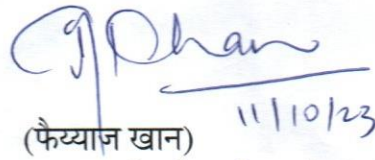 11/10/23
(फैय्याज खान)